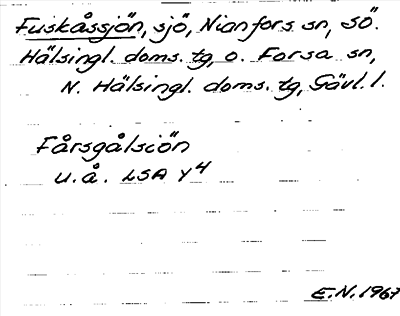 Fuskåssjön, sjö, Nianfors sn, SÖ.
Hälsingl. doms. tg, o. Forsa sn,
N. Hälsingl. doms. tg, Gävl. l.
Fårsgålsiön
u.å. LSA Y4
E.N. 1967